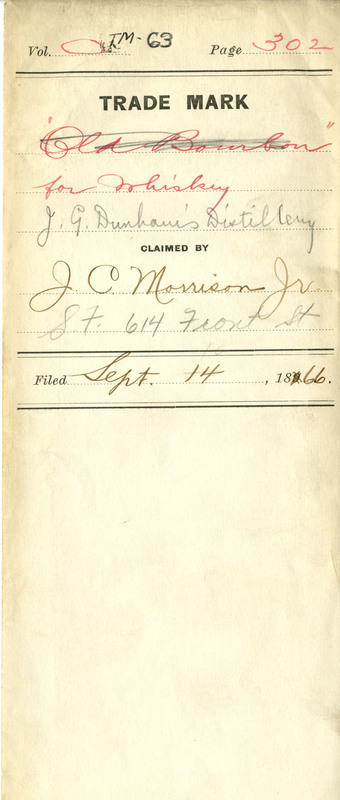 Vol. TM-63 Page 302
TRADE MARK
"Old Bourbon"
for Whiskey
J. G. Dunham's Distillery
CLAIMED BY
J C Morrison Jr.
SF. 614 Front St
Filed Sept. 14, 1866.